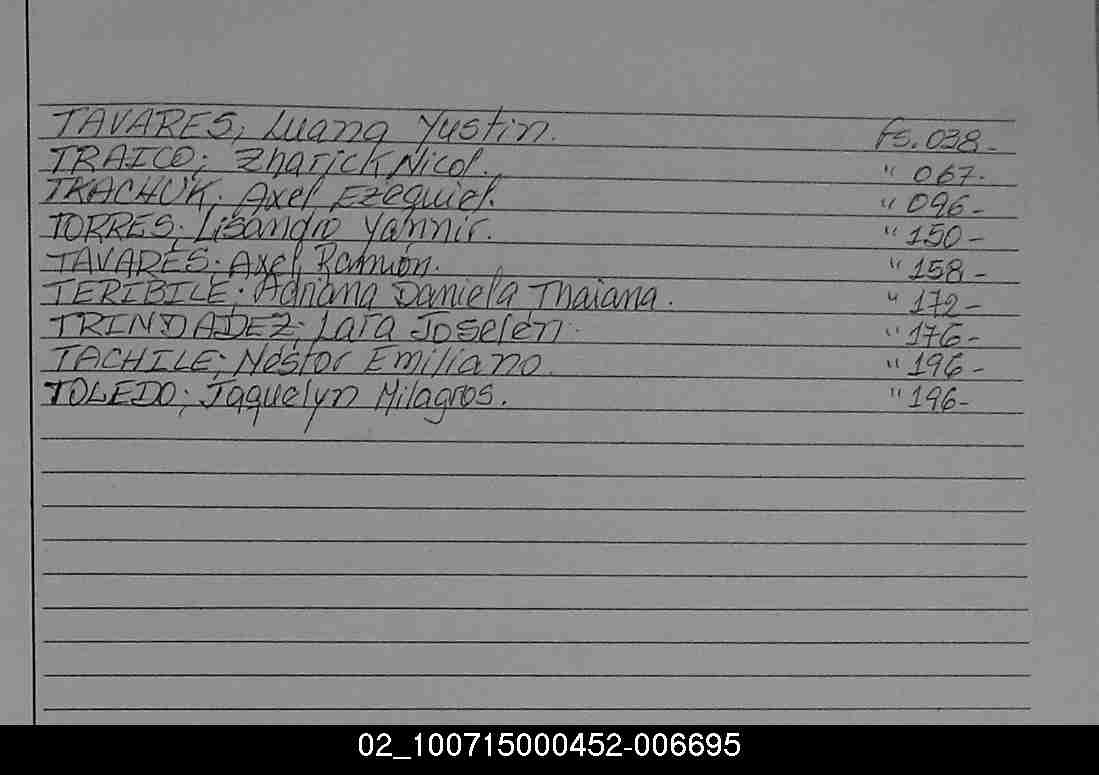 TAVARES; Luana Yustin. fs. 038-
TRAICO; Zharick Nicol. " 067-
TKACHUK; Axel Ezequiel. " 096-
TORRES; Lisandro Yannir. " 150-
TAVARES; Axel Ramón. " 158-
TERIBILE; Adriana Daniela Thaiana. " 172-
TRINDADEZ; Lara Joselen. " 176-
TACHILE; Néstor Emiliano. " 196-
TOLEDO; Jaquelyn Milagros. " 196-
02_100715000452-006695